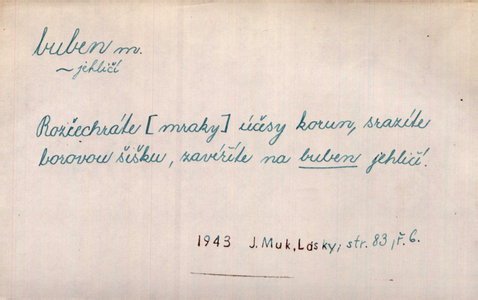 buben m.
~ jehličí
Rozčechráte [mraky] účesy korun, srazíte
borovou šišku, zavíříte na buben jehličí.
1943 J. Muk, Lásky, str. 83, ř. 6.